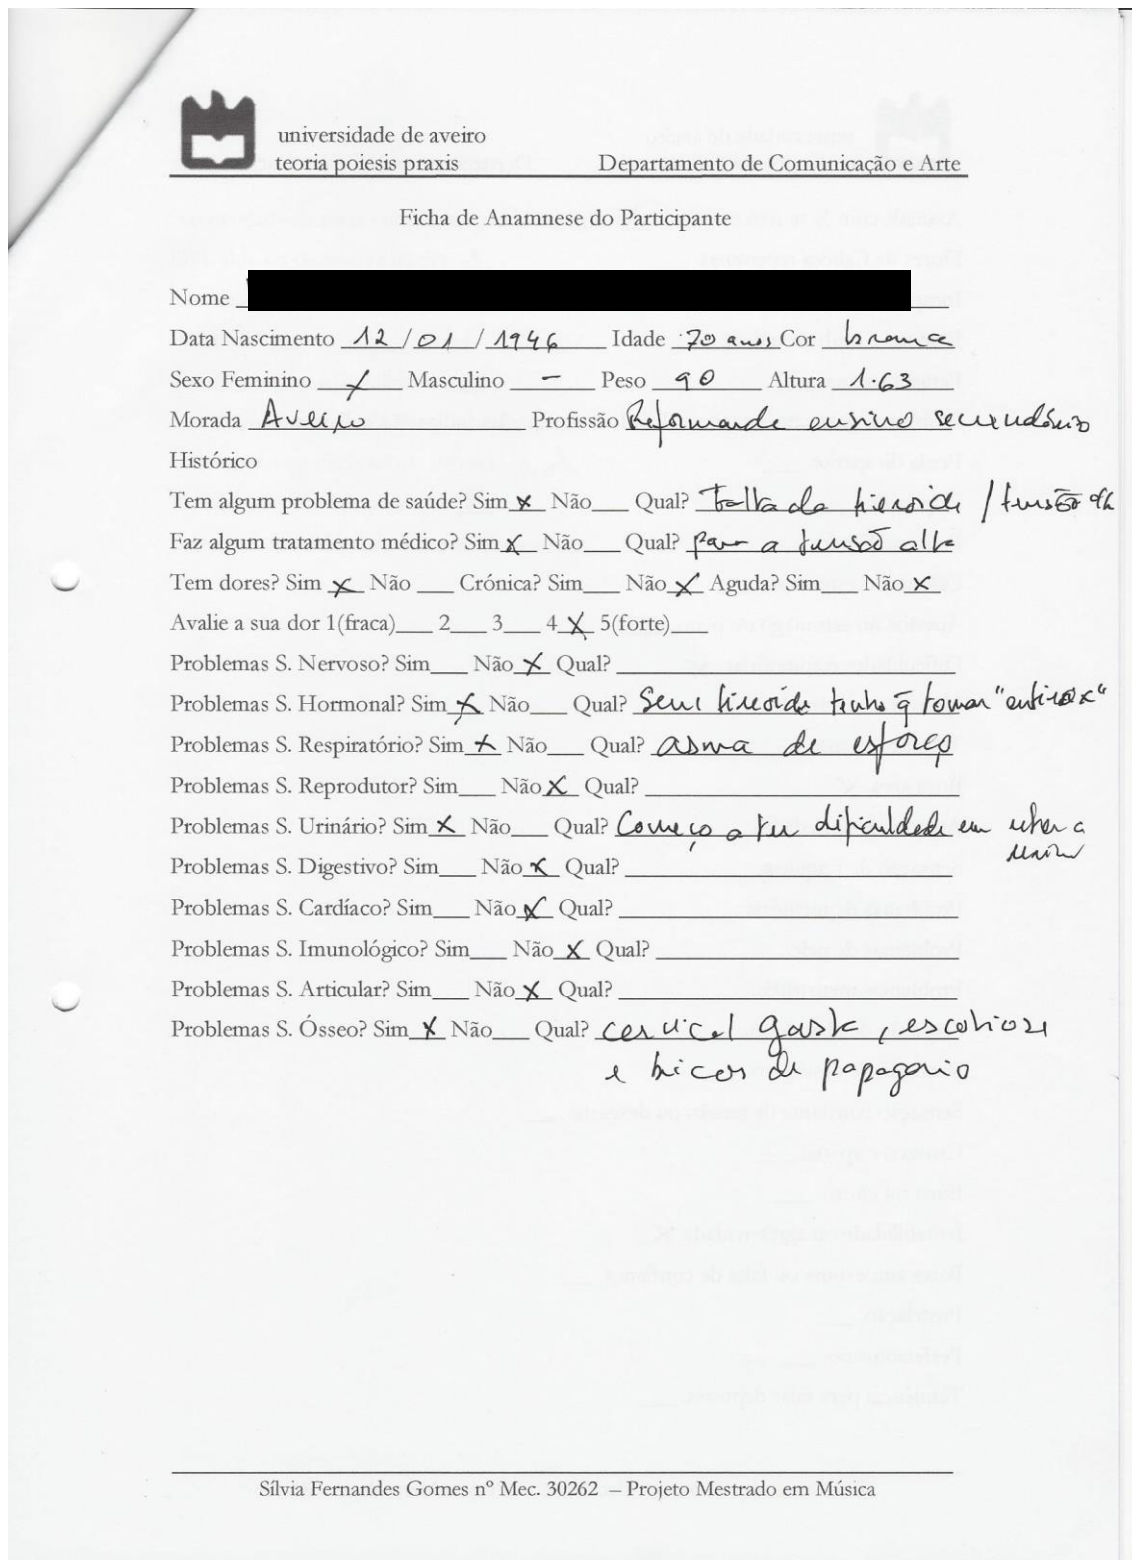 universidade de aveiro
teoria poiesis praxis Departamento de Comunicação e Arte
Ficha de Anamnese do Participante
Nome
Data Nascimento 12/01/1946 Idade 70 anos Cor branca
Sexo Feminino X Masculino - Peso 90 Altura 1.63
Morada Aveiro Profissão ensino secundário
Histórico
Tem algum problema de saúde? Sim X Não___ Qual? Falta da tieroide / tensão alta
Faz algum tratamento médico? Sim X Não___ Qual? para a tensão alta
Tem dores? Sim X Não ___ Crónica? Sim___ Não X Aguda? Sim___ Não X
Avalie a sua dor 1(fraca)___ 2___ 3___ 4 X 5(forte)___
Problemas S. Nervoso? Sim___ Não X Qual?
Problemas S. Hormonal? Sim X Não___ Qual? Sem tieroide tenho q̄ tomar
Problemas S. Respiratório? Sim X Não___ Qual? asma de esforço
Problemas S. Reprodutor? Sim___ Não X Qual?
Problemas S. Urinário? Sim X Não___ Qual? Começo a ter dificuldade em reter a
urina
Problemas S. Digestivo? Sim___ Não X Qual?
Problemas S. Cardíaco? Sim___ Não X Qual?
Problemas S. Imunológico? Sim___ Não X Qual?
Problemas S. Articular? Sim___ Não X Qual?
Problemas S. Ósseo? Sim X Não___ Qual? cervical gasta, escoliose
e bicos de papagaio
Sílvia Fernandes Gomes nº Mec. 30262 – Projeto Mestrado em Música